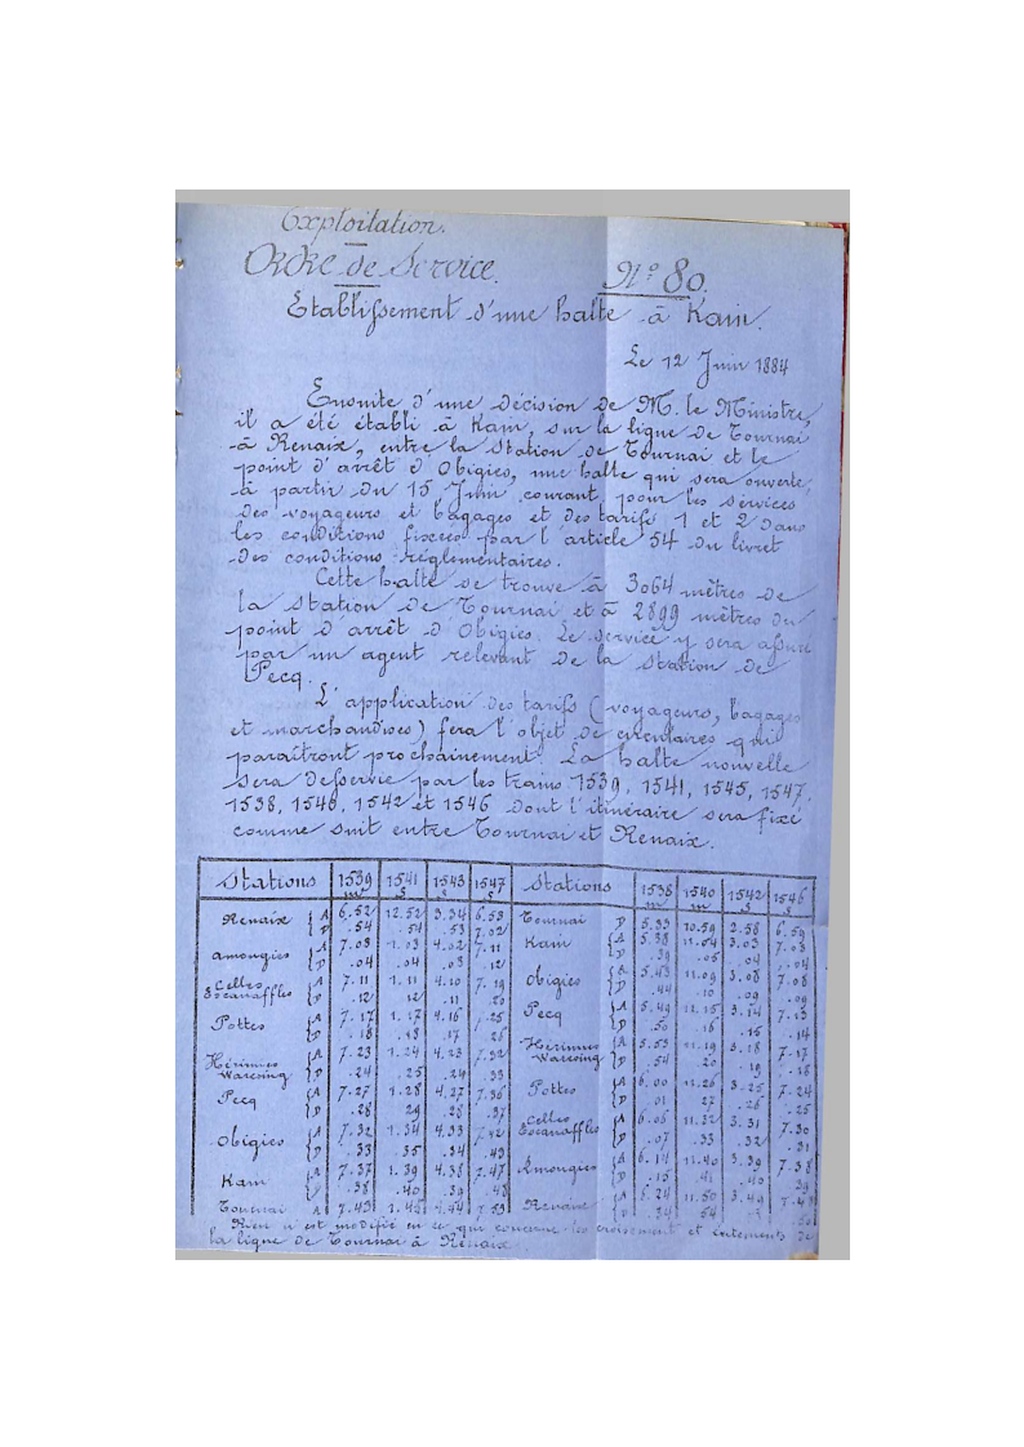 Exploitation.
Ordre de Service. N° 80.
Etablissement d'une halte à Kain.
Le 12 Juin 1884
Ensuite d'une décision de M. le Ministre,
il a été établi à Kain, sur la ligne de Tournai
à Renaix, entre la Station de Tournai et le
point d'arrêt d'Obigies, une halte qui sera ouverte,
à partir du 15 Juin courant, pour les services
des voyageurs et bagages et des tarifs 1 et 2 dans
les conditions fixées par l'article 54 du livret
des conditions réglementaires.
Cette halte se trouve à 3064 mètres de
la station de Tournai et à 2899 mètres du
point d'arrêt d'Obigies. Le service y sera assuré
par un agent relevant de la station de
Pecq.
L'application des tarifs (voyageurs, bagages
et marchandises) fera l'objet de circulaires qui
paraîtront prochainement. La halte nouvelle
sera desservie par les trains 1539, 1541, 1545, 1547,
1538, 1540, 1542 et 1546 dont l'itinéraire sera fixé
comme suit entre Tournai et Renaix.
Stations 1539 m 1541 s 1543 s 1547 s Stations 1538 m 1540 m 1542 s 1546 s
Renaix A 6.52 12.52 3.34 6.53 Tournai D 5.33 10.59 2.58 6.59
D .54 .54 .53 7.02 Kain A 5.38 11.04 3.03 7.03
Amougies A 7.03 1.03 4.02 7.11 D .39 .05 .04 .04
D .04 .04 .03 .12 Obigies A 5.43 11.09 3.08 7.08
Celles Escanaffles A 7.11 1.11 4.10 7.19 D .44 .10 .09 .09
D .12 12 .11 .20 Pecq A 5.49 11.15 3.14 7.13
Pottes A 7.17 1.17 4.16 7.25 D .50 .16 .15 .14
D .18 .18 .17 26 Hérinnes Warcoing A 5.53 11.19 3.18 7.17
Hérinnes Warcoing A 7.23 1.24 4.23 7.32 D .54 .20 .19 .18
D .24 .25 .24 .33 Pottes A 6.00 11.26 3.25 7.24
Pecq A 7.27 1.28 4.27 7.36 D .01 27 .26 .25
D .28 29 .28 .37 Celles Escanaffles A 6.06 11.32 3.31 7.30
Obigies A 7.32 1.34 4.33 7.42 D .07 .33 .32 .31
D .33 35 .34 .43 Amougies A 6.14 11.40 3.39 7.38
Kain A 7.37 1.39 4.38 7.47 D .15 .41 .40 .39
D .38 .40 .39 .48 Renaix A 6.24 11.50 3.49
Tournai A 7.43 1.45 4.44 7.53 D .34 54
Rien n'est modifié en ce qui concerne les croisements et évitements de
la ligne de Tournai à Renaix.